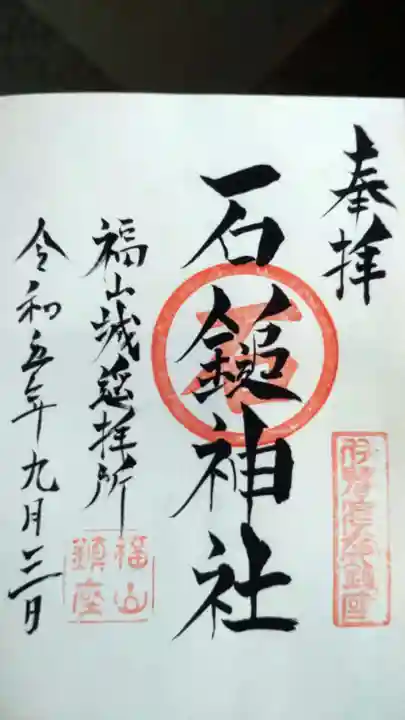 奉拝
石鎚神社
福山城遥拝所
令和五年九月三日
福山
鎮座